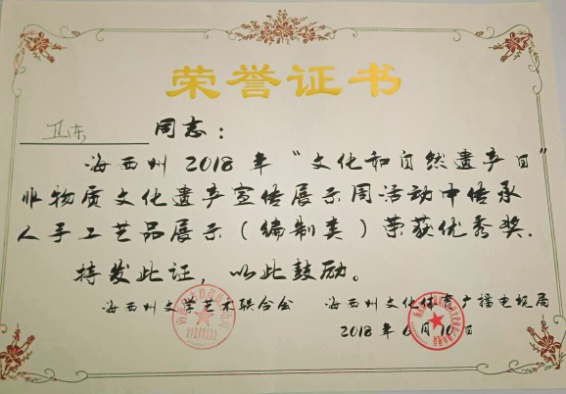 荣誉证书
卫东 同志：
海西州 2018 年“文化和自然遗产日”
非物质文化遗产宣传展示周活动中传承
人手工艺品展示（编制类）荣获优秀奖.
特发此证，以此鼓励。
海西州文学艺术联合会 海西州文化体育广播电视局
2018 年 6 月 10 日